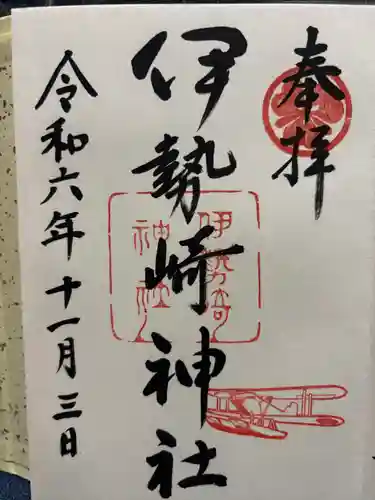 奉拝
伊勢崎神社
伊勢崎
神社
令和六年十一月三日